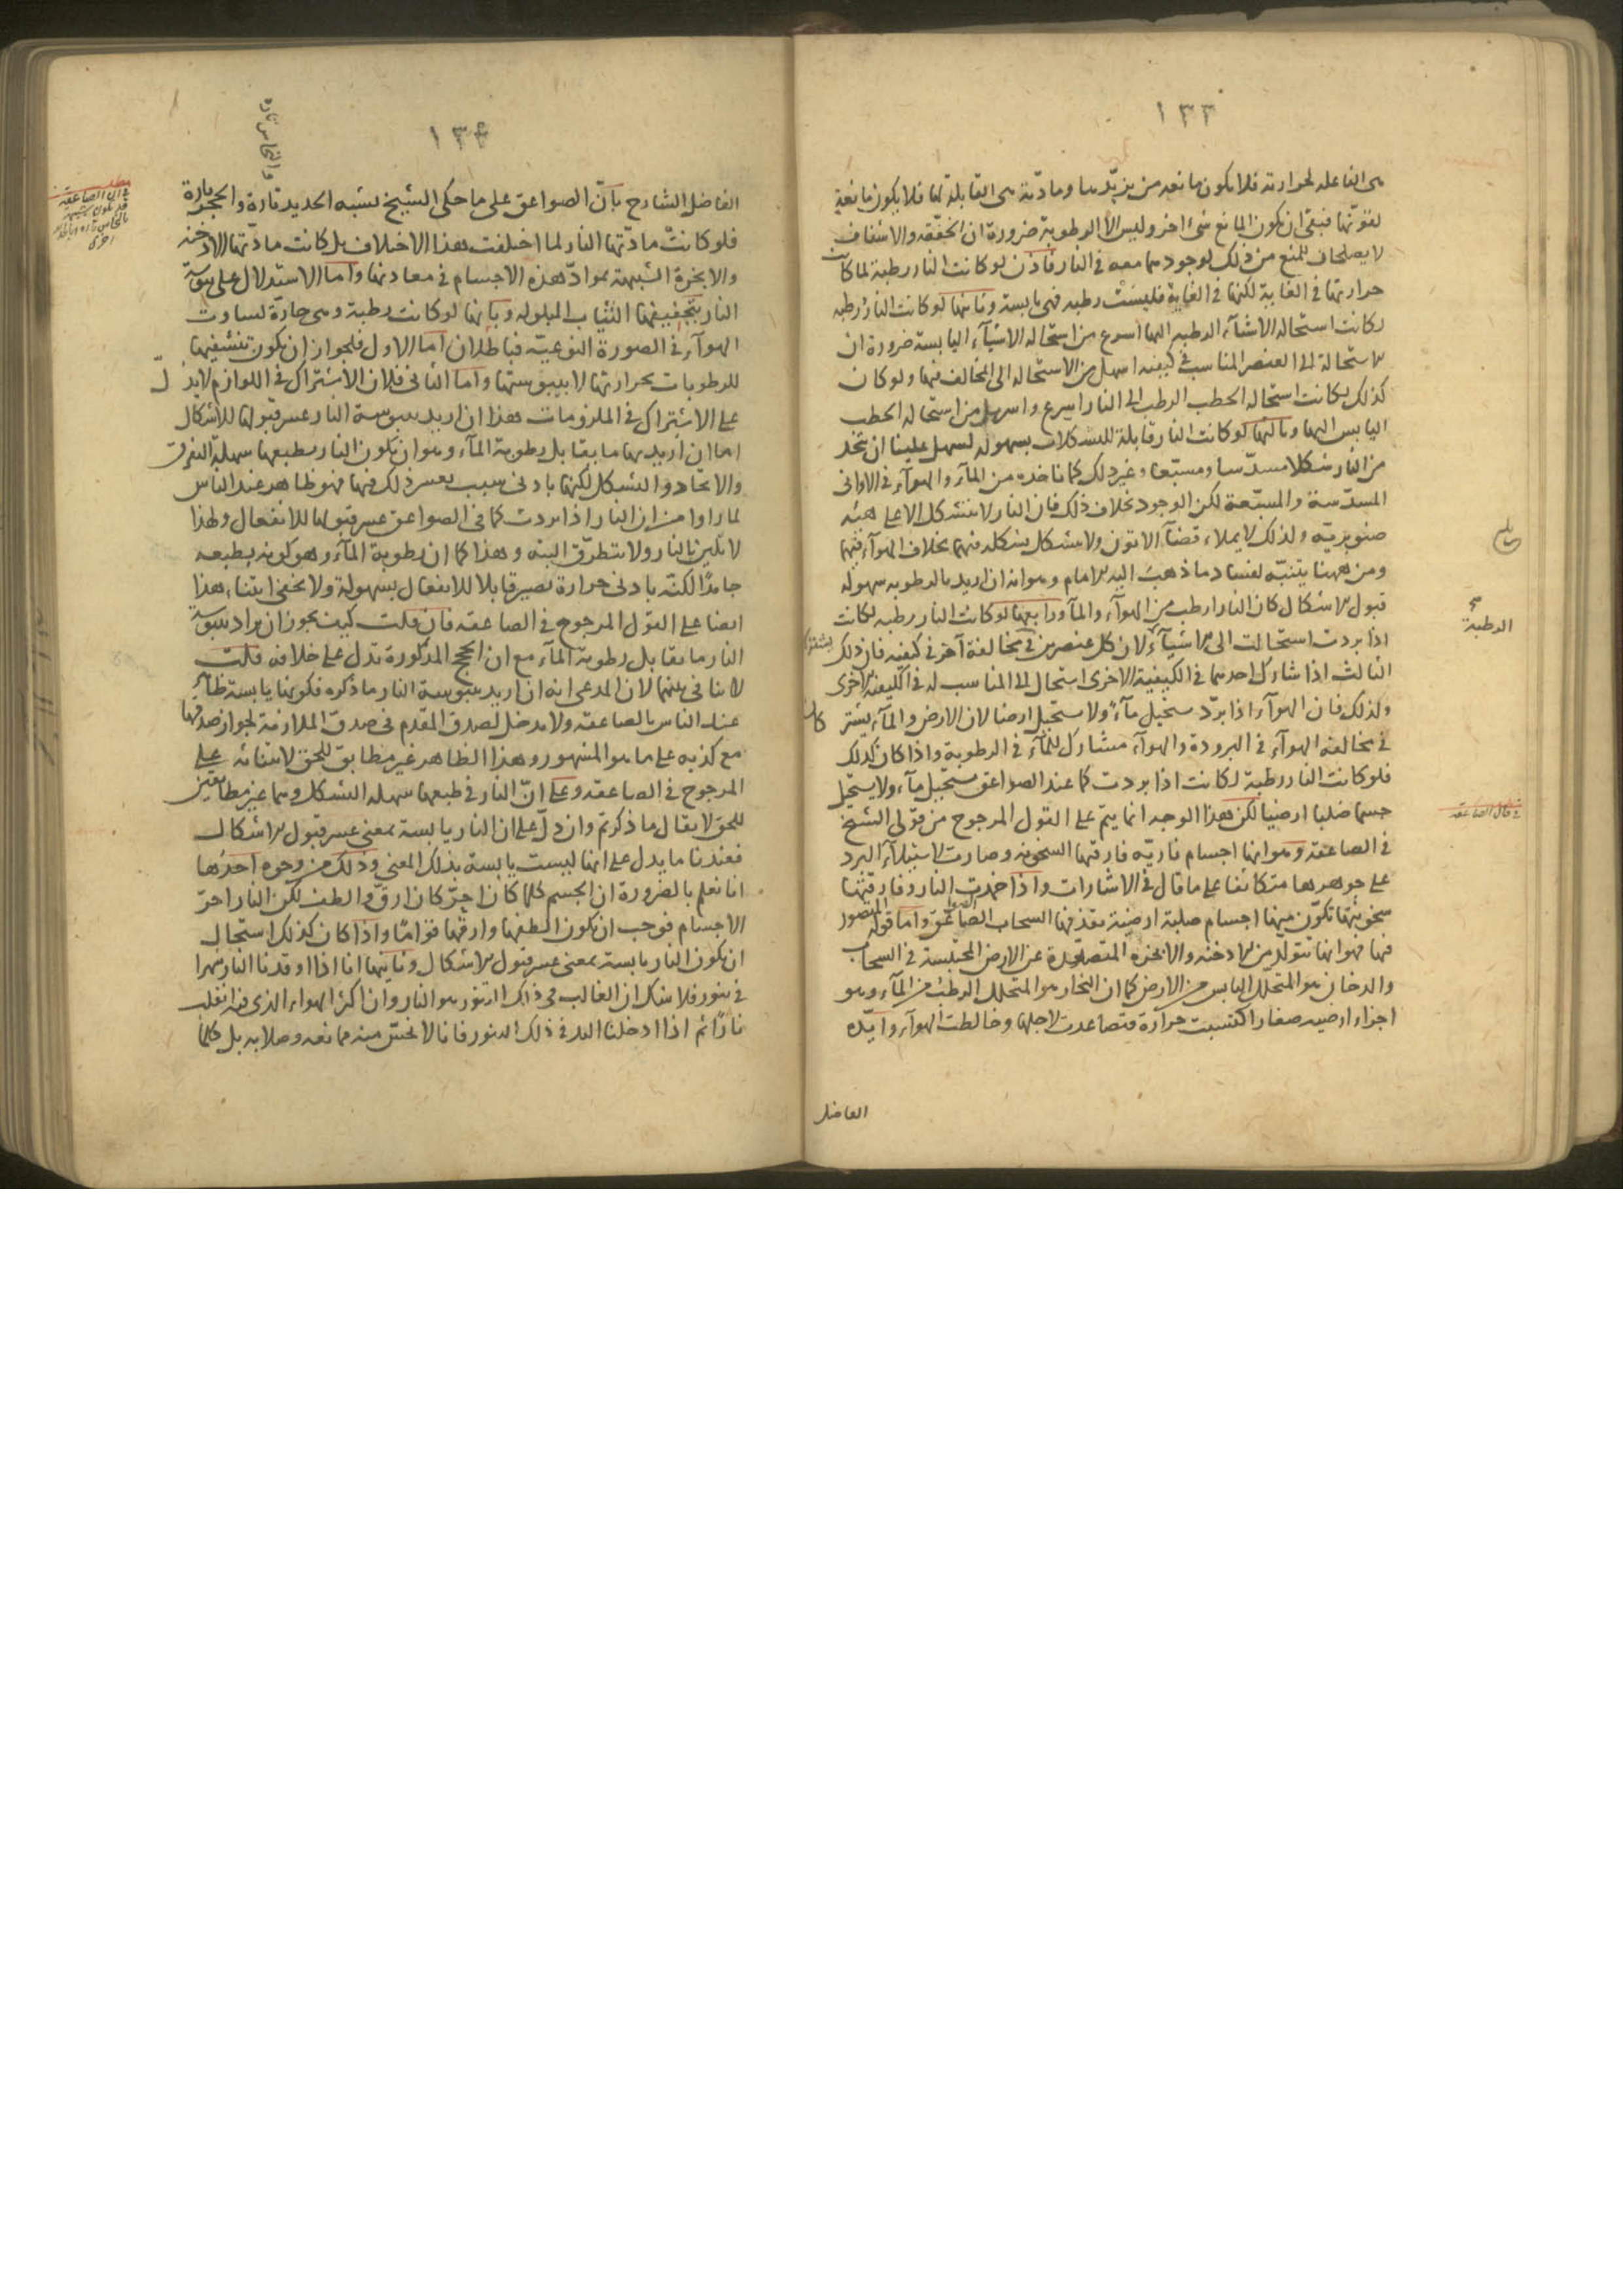 ١٣٣
هى الفاعلة لحرارته فلا يكون مانعه من يزيدها ومادته هى القابلة لها فلا يكون مانعة
لقوتها فبقى ان يكون المانع شىء اخر وليس الا الرطوبة ضرورة ان الخفة والاشفاف
لا يصلحان للمنع من ذلك لوجودهما معه فى النار فاذن لو كانت النار رطبة لما كانت
حرارتها فى الغاية لكنها فى الغاية فليست رطبه فهى يابسة وثانيها لو كانت النار رطبه
لكانت استحاله الاشيآء الرطبه اليها اسرع من استحاله الاشيآء اليابسة ضرورة ان
الاستحالة الى العنصر المناسب فى كيفيه اسهل من الاستحاله الى المخالف فيها ولو كان
كذلك لكانت استحاله الحطب الرطب الى النار اسرع واسهل من استحاله الحطب
اليابس اليها وثالثها لو كانت النار قابلة للتشكلات بسهوله لسهل علينا ان نتخذ
من النار شكلا مسدسا ومسبعا وغير ذلك كما ناخذه من المآء والهوآء فى الاوانى
المسدسة والمسبعة لكن الوجود بخلاف ذلك فان النار لا تتشكل الا على هيئه
صنوبرية ولذلك لا يملاء فضآء الاتون ولا يتشكل بشكله فيها بخلاف الهوآء فيهما
ومن ههنا يتنبه لفساد ما ذهب اليه الامام وهو انه ان اريد بالرطوبه سهوله
قبول الاشكال كان النار ارطب من الهوآء والمآء ورابعها لو كانت النار رطبه لكانت
اذا بردت استحالت الى الاشيآء الرطبة لان كل عنصرين فى مخالفة آخر فى كيفيه فان ذلك
الثالث اذا شارك احدهما فى الكيفية الاخرى استحال الى المناسب له فى الكيفية الاخرى
ولذلك فان الهوآء اذا برد يستحيل مآء ولا يستحيل ارضا لان الارض والمآء يشتركان
فى مخالفه الهوآء فى البرودة والهوآء مشارك للمآء فى الرطوبة واذا كان كذلك
فلو كانت النار رطبة لكانت اذا بردت كما عند الصواعق تستحيل مآء ولا يستحيل
جسما صلبا ارضيا لكن هذا الوجه انما يتم على القول المرجوح من قولى الشيخ
فى الصاعقه وهو انها اجسام نارية فارقتها السخونه وصارت لاستيلآء البرد
على جوهرها متكاثفا على ما قال فى الاشارات واذا خمدت النار وفارقتها
سخونتها تكون منها اجسام صلبة ارضية تقذفها السحاب الصاعق واما قوله المنصور
فيها فهو انها تتولد من الادخنه والابخره المتصعدة عن الارض المحتبسة فى السحاب
والدخان هو المتحلل اليابس من الارض كما ان البخار هو المتحلل الرطب من المآء وهو
اجزاء ارضيه صغار اكتسبت حرارة فتصاعدت لاجلها وخالطت الهوآء وايده
الرطبة
فى حال الصاعقه
الفاضل
١٣٤
والنحاس تارة
الفاضل الشارح بان الصواعق على ما حكى الشيخ تشبه الحديد تارة والحجر تارة
فلو كانت مادتها النار لما اختلفت هذا الاختلاف بل كانت مادتها الادخنه
والابخرة الشبيهة بمواد هذه الاجسام فى معادنها واما الاستدلال على يبوسة
النار بتجفيفها الثياب المبلوله وبانها لو كانت رطبة وهى حارة لساوت
الهوآء فى الصورة النوعيه فباطلان اما الاول فلجواز ان يكون تنشيفها
للرطوبات بحرارتها لا بيبوستها واما الثانى فلان الاشتراك فى اللوازم لا يدل
على الاشتراك فى الملزومات هذا ان اريد بيبوسة النار عسر قبولها للاشكال
اما ان اريد بها ما يقابل رطوبة المآء وهو ان يكون النار بطبعها سهلة التفرق
والاتحاد والتشكل لكنها بادنى سبب يعسر ذلك فيها فهو ظاهر عند الناس
لما راوا من ان النار اذا بردت كما فى الصواعق عسر قبولها للانفعال ولهذا
لا تلين بالنار ولا تنطرق البته وهذا كما ان رطوبة المآء وهو كونه بطبعه
جامدًا لكنه بادنى حرارة يصير قابلا للانفعال بسهولة ولا يخفى ابتناء هذا
ايضا على القول المرجوح فى الصاعقه فان قلت كيف يجوز ان يراد بيبوسة
النار ما يقابل رطوبة المآء مع ان الحجج المذكورة تدل على خلافه قلت
لا تنافى بينهما لان المدعى انه ان اريد بيبوسة النار ما ذكره فكونها يابسة ظاهر
عند الناس بالصاعقه ولا مدخل لصدق المقدم فى صدق الملازمة لجواز صدقها
مع كذبه على ما هو المشهور وهذا الظاهر غير مطابق للحق لابتنائه على
المرجوح فى الصاعقه وعلى ان النار فى طبعها سهله التشكل وهما غير مطابقين
للحق لا يقال ما ذكرتم وان دل على ان النار يابسة بمعنى عسر قبول الاشكال
فعندنا ما يدل على انها ليست يابسة بذلك المعنى وذلك من وجوه احدها
انا نعلم بالضرورة ان الجسم كلما كان احر كان ارق والطف لكن النار احر
الاجسام فوجب ان يكون الطفها وارقها قوامًا واذا كان كذلك استحال
ان يكون النار يابسة بمعنى عسر قبول الاشكال وثانيها انا اذا اوقدنا النار شهرا
فى تنور فلا شك ان الغالب فى ذلك التنور هو النار وان اكثر الهواء الذى فيه انقلب
نارًا ثم اذا ادخلنا اليد فى ذلك التنور فانا لا نحس منه ممانعه وصلابه بل كلما